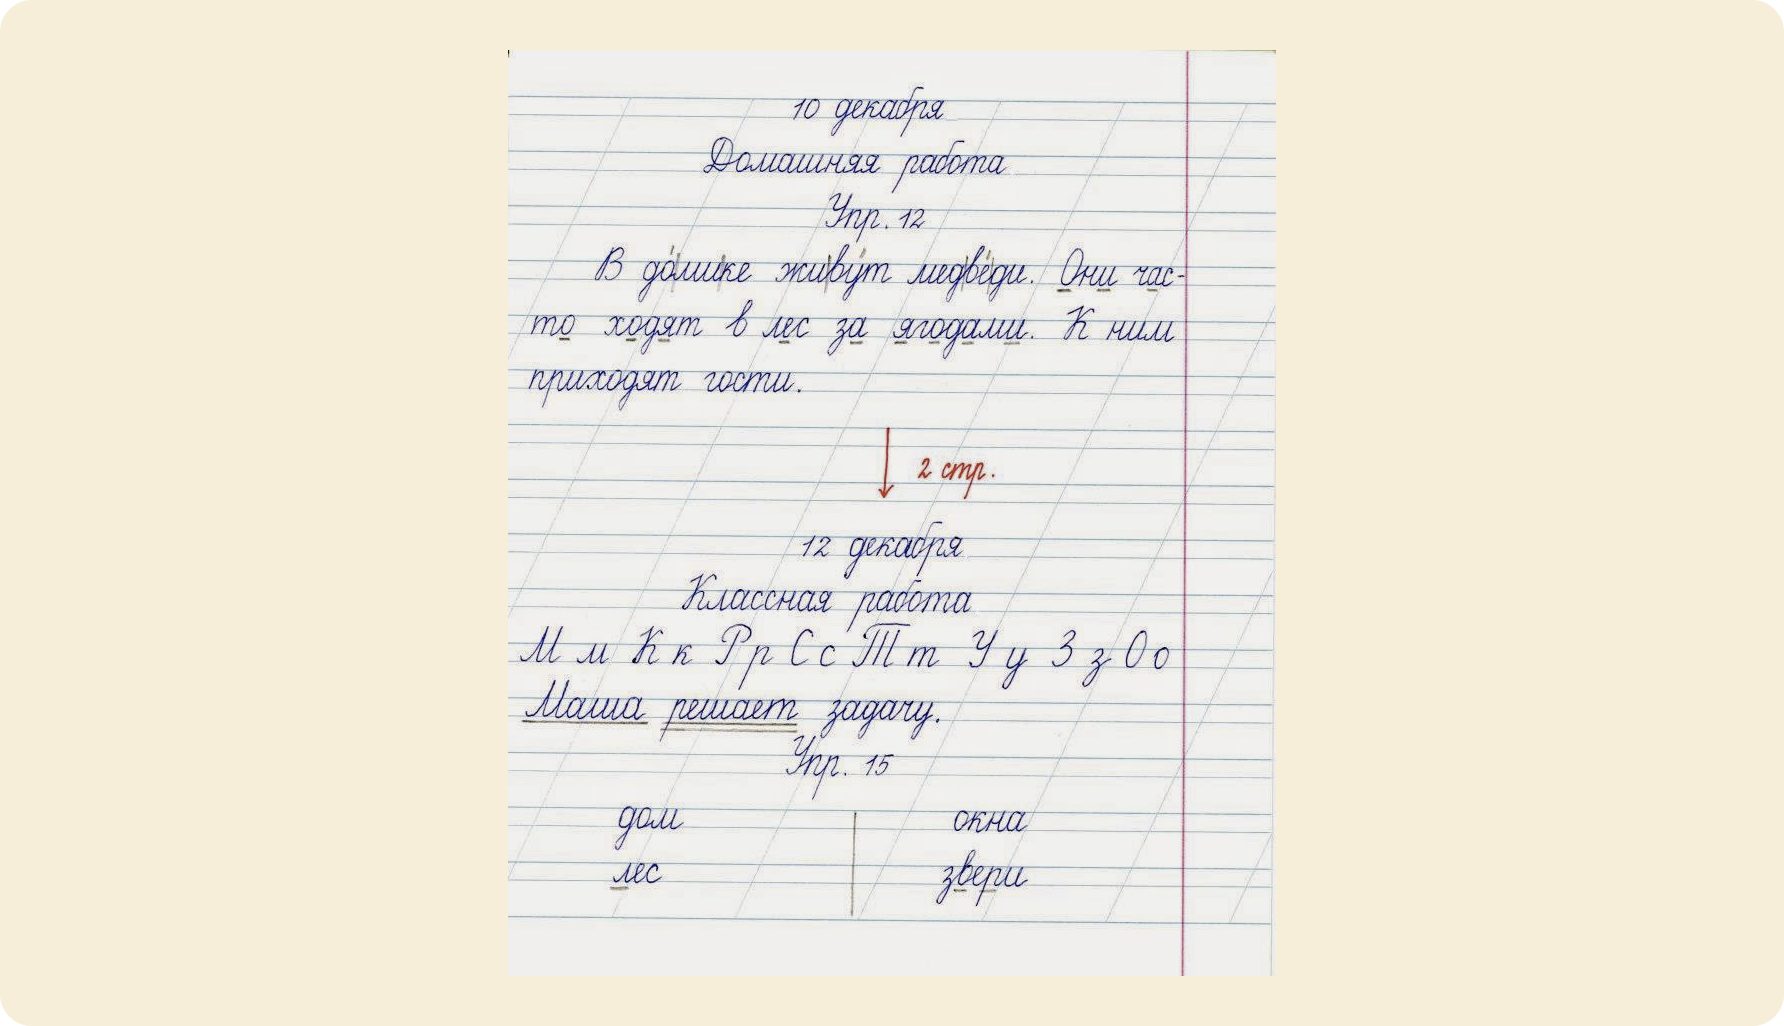 10 декабря
Домашняя работа
Упр. 12
В до́мике живу́т медве́ди. Они час-
то ходят в лес за ягодами. К ним
приходят гости.
2 стр.
12 декабря
Классная работа
М м К к Р р С с Т т У у З з О о
Маша решает задачу.
Упр. 15
дом окна
лес звери